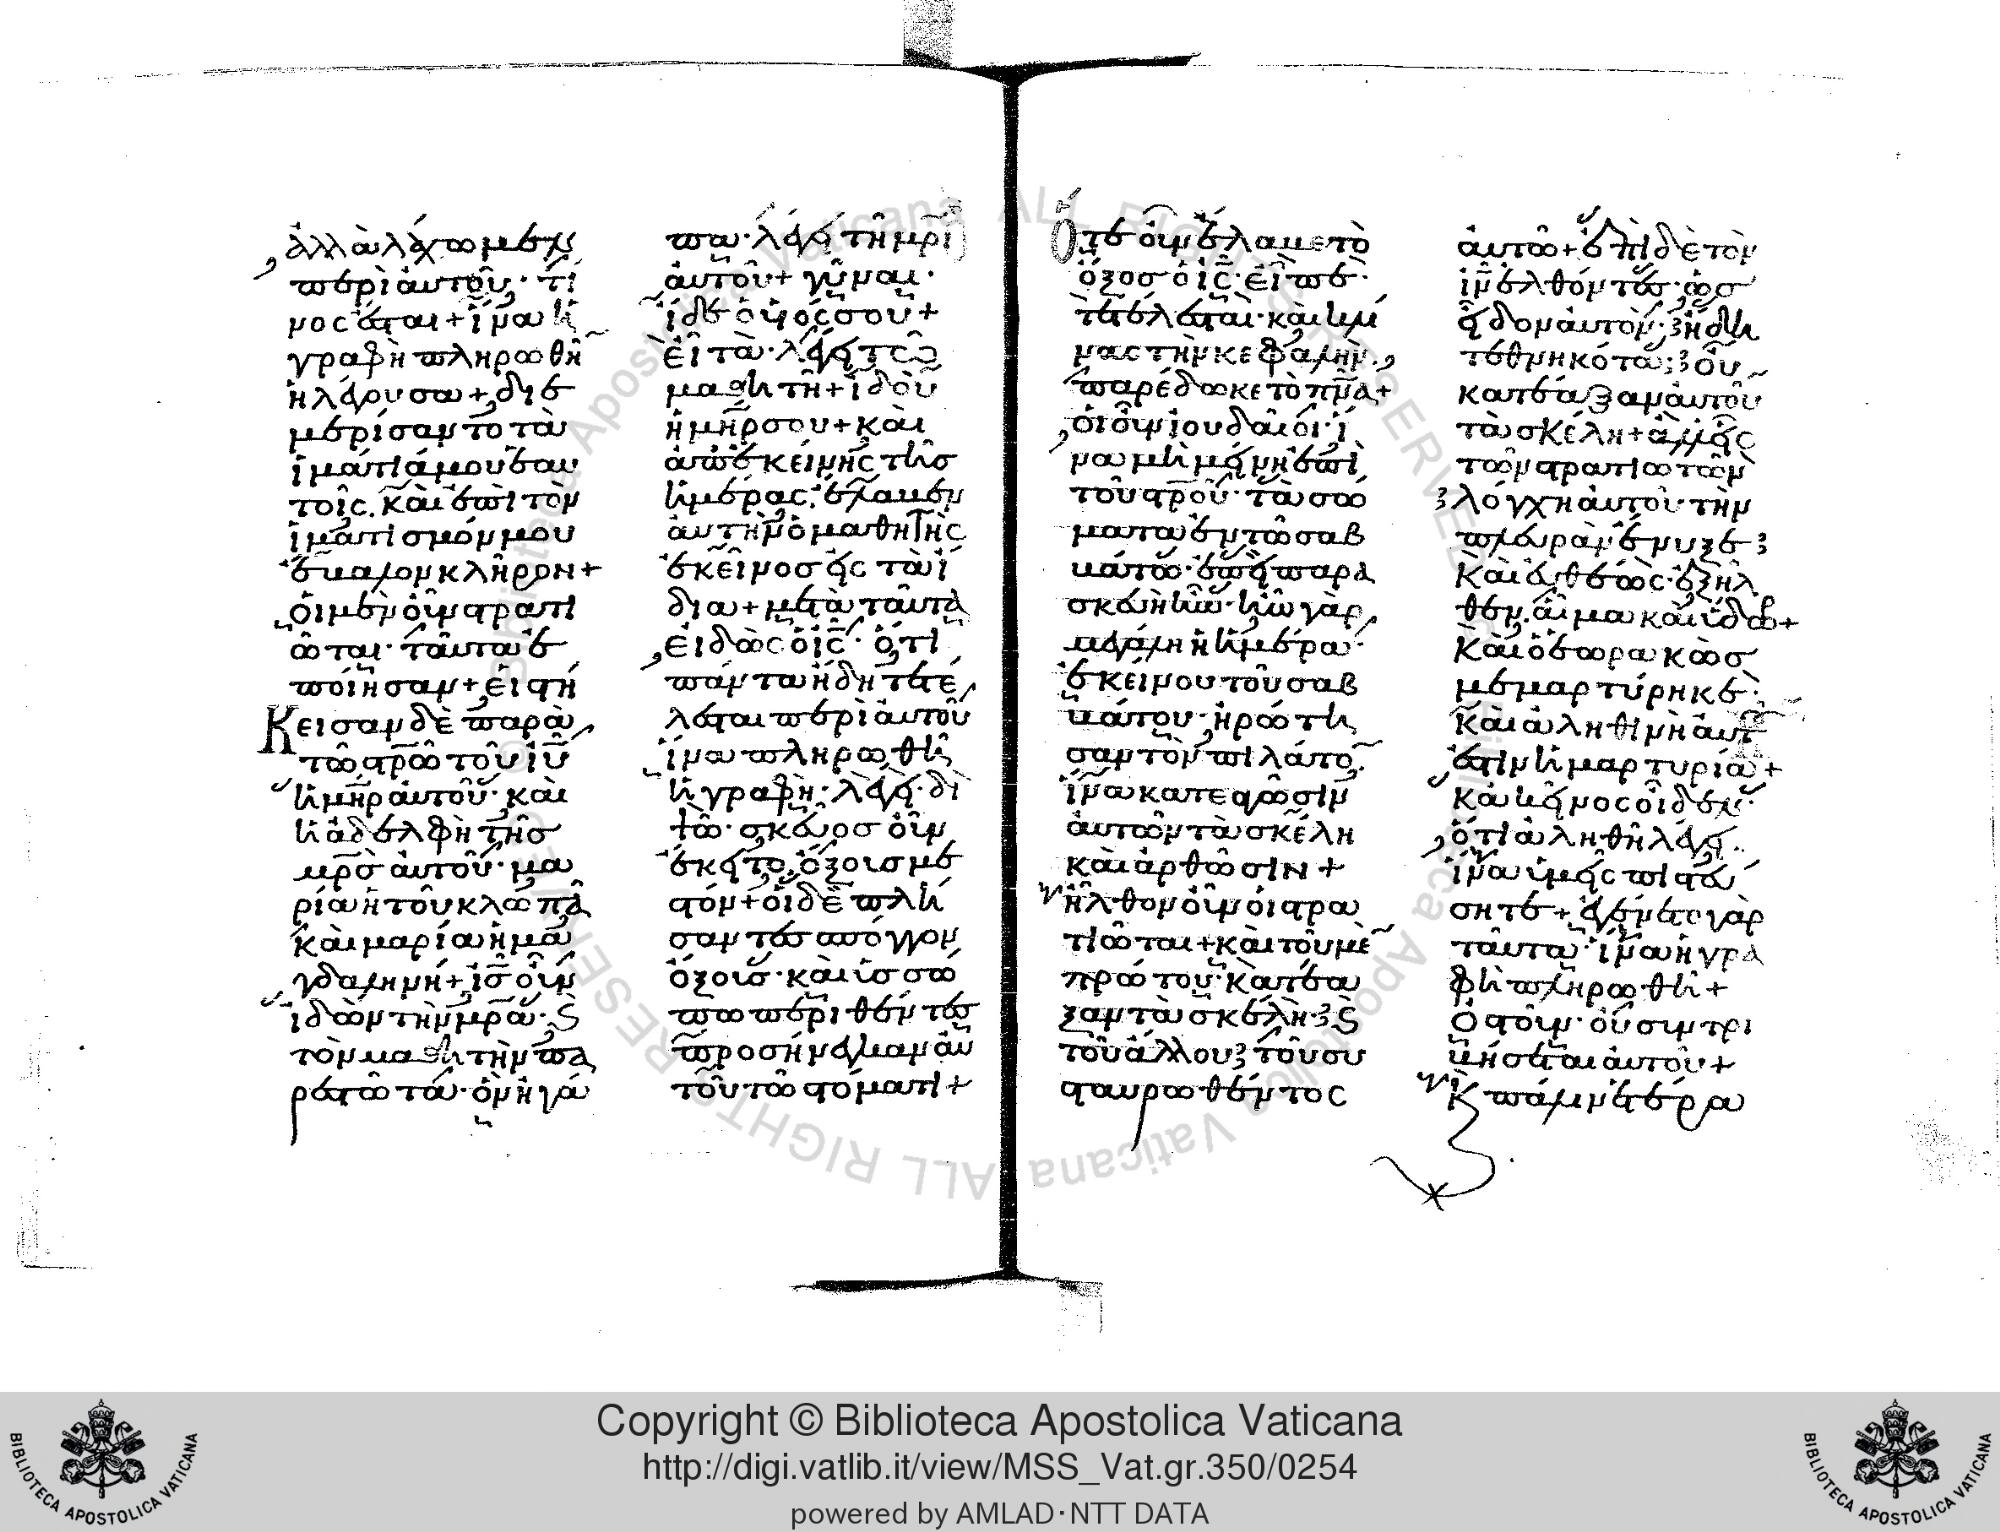 ἀλλὰ λάχωμεν
περὶ αὐτοῦ· τί
νος ἔσται + ἵνα ἡ
γραφὴ πληρωθῆ
ἡ λέγουσα + διε
μερίσαντο τὰ
ἱμάτιά μου ἑαυ
τοῖς. καὶ ἐπὶ τὸν
ἱματισμόν μου
ἔβαλον κλῆρον +
οἱ μὲν οὖν στρατι
ῶται· ταῦτα ἐ
ποίησαν + εἱστή
Κεισαν δὲ παρὰ
τῶ στρῶ τοῦ ιυ
ἡ μηρ αὐτοῦ· καὶ
ἡ ἀδελφὴ τῆς
μρς αὐτοῦ· μα
ρία ἡ τοῦ κλωπᾶ
καὶ μαρία ἡ μα
γδαληνή + ις οὖν
ἰδὼν τὴν μρα· ϛ
τὸν μαθητὴν πα
ρεστῶτα· ὃν ἠγά
πα· λέγει τῆ μρι
αὐτοῦ + γύναι·
ἴδε ὁ υἱός σου +
εἶτα· λέγει τῶ
μαθητῆ + ἰδοὺ
ἡ μηρ σου + καὶ
ἀπ ἐκείνης τῆς
ἡμέρας· ἔλαβεν
αὐτὴν ὁ μαθητὴς
ἐκεῖνος εἰς τὰ ἴ
δια + μετὰ ταῦτα
εἰδὼς ὁ ις· ὅτι
πάντα ἤδη τετέ
λεσται περὶ αὐτοῦ
ἵνα πληρωθῆ
ἡ γραφή· λέγει· δι
ψῶ· σκεῦος οὖν
ἔκειτο ὄξους με
στόν + οἱ δὲ πλή
σαντες σπόγγον
ὄξους· καὶ ὑσσώ
πω περιθέντες
προσήνεγκαν αὐ
τοῦ τῶ στόματι +
Ὅτε οὖν ἔλαβε τὸ
ὄξος ὁ ις· εἶπε·
τετέλεσται· καὶ κλί
νας τὴν κεφαλὴν,
παρέδωκε τὸ πνα +
οἱ οὖν ἰουδαῖοι· ἵ
να μὴ μείνη ἐπὶ
τοῦ στροῦ· τὰ σώ
ματα ἐν τῶ σαβ
βάτω· ἐπεὶ παρα
σκευὴ ἦν· ἦν γὰρ
μεγάλη ἡ ἡμέρα·
ἐκείνου τοῦ σαβ
βάτου· ἠρώτη
σαν τὸν πιλάτο̅
ἵνα κατεαγῶσιν
αὐτῶν τὰ σκέλη
καὶ ἀρθῶσιν +
ἦλθον οὖν οἱ στρα
τιῶται + καὶ τοῦ μὲ̅
πρώτου· κατέα
ξαν τὰ σκέλη· ϛ
τοῦ ἄλλου τοῦ συ
σταυρωθέντος
αὐτῶ + ἐπὶ δὲ τὸν
ιν ἐλθόντες· ὡς
εἶδον αὐτὸν ἤδη
τεθνηκότα; οὐ
κατέαξαν αὐτοῦ
τὰ σκέλη + ἀλλ εἷς
τῶν στρατιωτῶν
λόγχη αὐτοῦ τὴν
πλευρὰν ἔνυξε
Καὶ εὐθέως· ἐξῆλ
θεν. αἷμα καὶ ὕδωρ +
Καὶ ὁ ἑωρακὼς
μεμαρτύρηκε·
καὶ ἀληθινὴ αὐτ
ἐστιν ἡ μαρτυρία +
κακεῖνος οἶδεν·
ὅτι ἀληθῆ λέγει.
ἵνα ὑμεῖς πιστεύ
σητε + ἐγένετο γὰρ
ταῦτα· ἵνα ἡ γρα
φὴ πληρωθῆ +
Ὀστοῦν· οὐ συντρι
βήσεται αὐτοῦ +
Κ πάλιν ἑτέρα
Copyright © Biblioteca Apostolica Vaticana
http://digi.vatlib.it/view/MSS_Vat.gr.350/0254
powered by AMLAD·NTT DATA
BIBLIOTECA APOSTOLICA VATICANA
BIBLIOTECA APOSTOLICA VATICANA